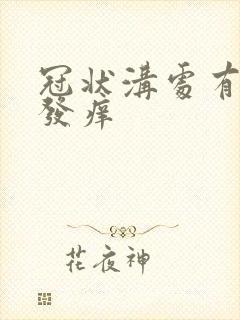 冠状溝處有
發痒
花夜神